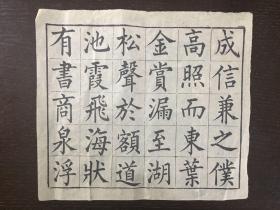 成信兼之僕
高照而東葉
金賞漏至湖
松聲於額道
池霞飛海狀
有書商泉浮